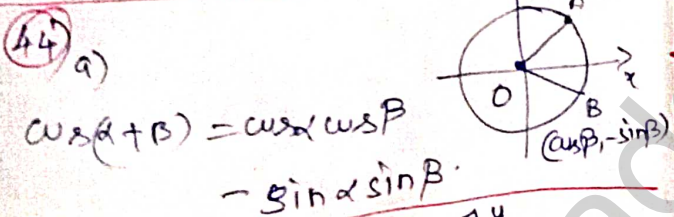 44 a)
A
x
O
B
(cosβ, -sinβ)
cos(α+β) = cosα cosβ
- sinα sinβ.
y